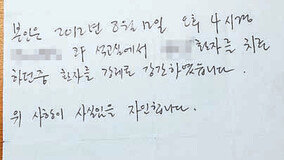 본인은 2012년 8월 12일 오후 4시경
과 석고실에서 환자를 치료
하던중 환자를 강제로 강간하였습니다.
위 사항이 사실임을 자인합니다.